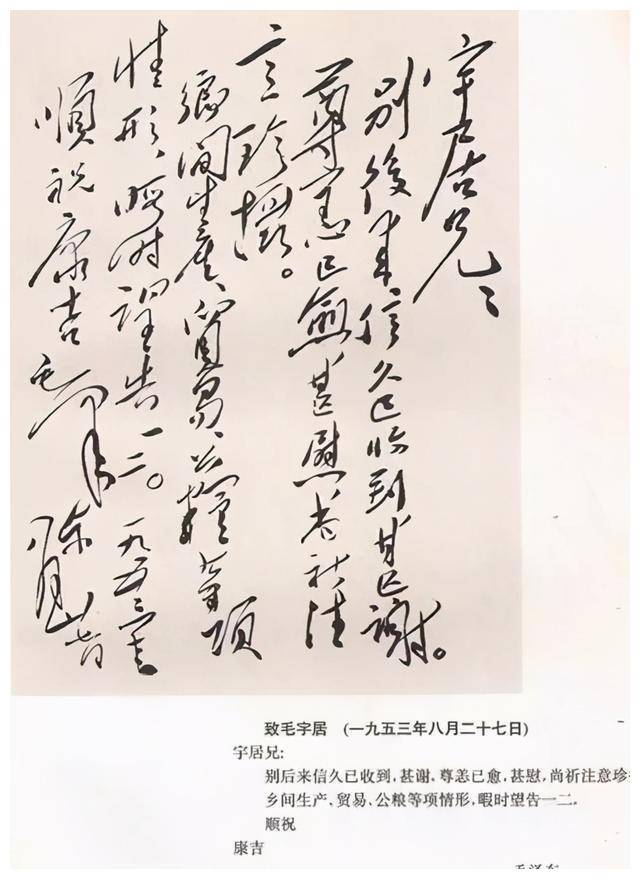 宇居兄:
别後来信久已收到甚謝。
尊恙已愈甚慰尚祈注
意珍攝。
鄉間生產、貿易、公糧等項
情形、暇时望告一二。
順祝康吉
毛澤東
一九五三年
八月廿七日
致毛宇居 (一九五三年八月二十七日)
宇居兄:
别后来信久已收到,甚谢,尊恙已愈,甚慰,尚祈注意珍
乡间生产、贸易、公粮等项情形,暇时望告一二.
顺祝
康吉
毛泽东